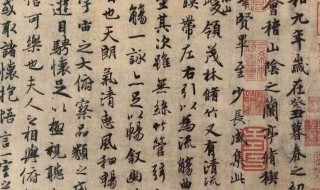 和九年歲在癸丑暮春之初
會稽山陰之蘭亭脩稧
賢畢至少長咸集此
峻領茂林脩竹又有清流
暎帶左右引以為流觴曲
坐其次雖無絲竹管弦
觴一詠亦足以暢叙幽
也天朗氣清惠風和暢
宇宙之大俯察品類之盛
遊目騁懷足以極視聽
信可樂也夫人之相與俯
或取諸懷抱悟言一室之